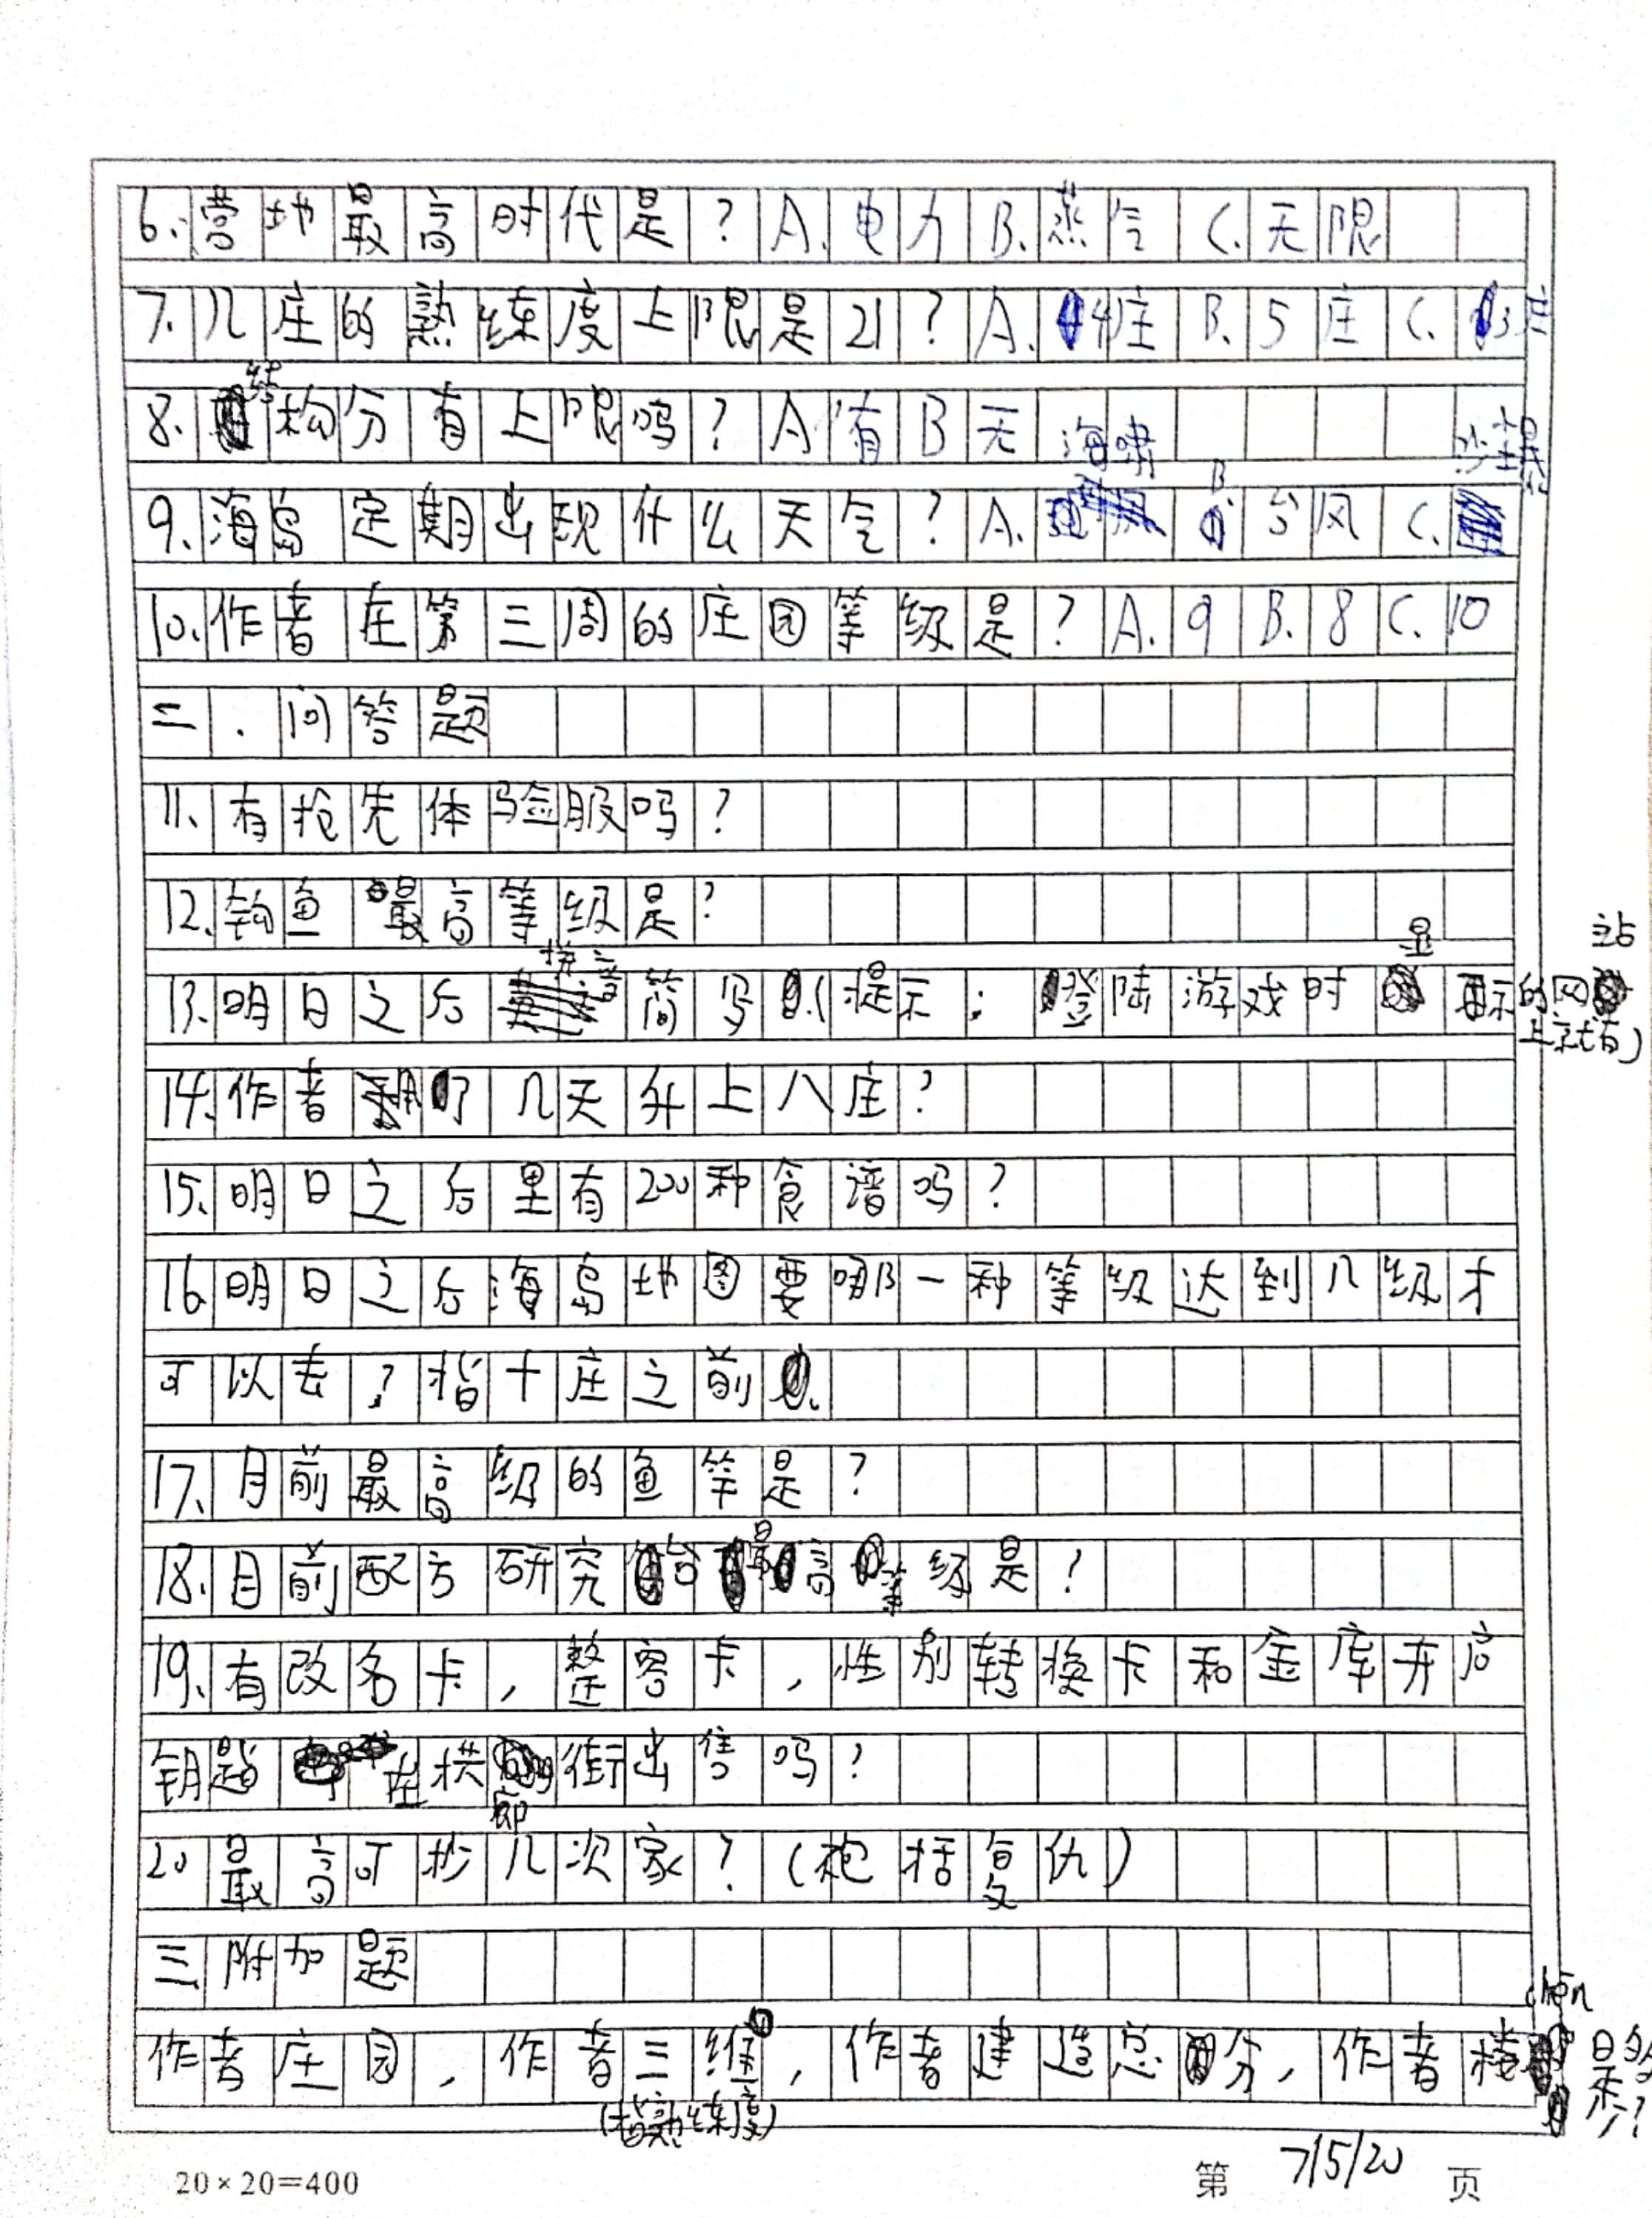 6.营地最高时代是？A.电力B.蒸气C.无限
7.几庄的熟练度上限是21？A.4庄B.5庄C.3庄
8.结构分有上限吗？A有B无
9.海岛定期出现什么天气？A.海啸B.台风C.沙尘暴
10.作者在第三周的庄园等级是？A.9B.8C.10
二.问答题
11.有抢先体验服吗？
12.钓鱼最高等级是？
13.明日之后拼音简写(提示:登陆游戏时显示的网站上就有)
14.作者用了几天升上八庄？
15.明日之后里有200种食谱吗？
16.明日之后海岛地图要哪一种等级达到几级才
可以去？指十庄之前
17.月前最高级的鱼竿是？
18.目前配方研究台最高等级是？
19.有改名卡,整容卡,性别转换卡和金库开启
钥匙在拱廊街出售吗？
20最高可抄几次家？(袍括复仇)
三附加题
作者庄园,作者三维(指熟练度),作者建造总分,作者chēn是多少？
20×20=400
第7/5/20页